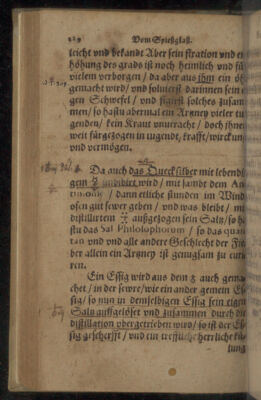 Vom Spießglaß.
leicht vnd bekandt Aber sein
höhung des grads ist noch heimlich vnd
vielem verborgen / da aber aus ihm ein öl
gemacht wird / vnd solviert darinnen sein
gen Schwefel / vnd solches zusam
men / so hastu abermal ein Artzney vieler tu
genden / kein Kraut vnueracht / doch
weit fürgezogen in tugend, krafft / wirckun
vnd vermögen.
Da auch das Quecksilber mit lebendi
gem wird / mit sampt dem An
/ dann etliche stunden im Wind
ofen gut fewer geben / vnd was bleibt / mi
distillirtem außgezogen sein Saltz / so h
stu das Sal Philosophorum / so das quar
tan vnd vnd alle andere Geschlecht der Fie
ber allein ein Artzney ist genugsam zu curi
ren.
Ein Essig wird aus dem gema
chet / in der sewre / wie ein ander gemein Es
sig / so nun in demselbigen Essig sein eigen
Saltz auffgelöset vnd zusammen durch die
distillation vbergetrieben wird / so ist der Es
sig gescherfft / vnd ein treffliche herrliche kü
lung